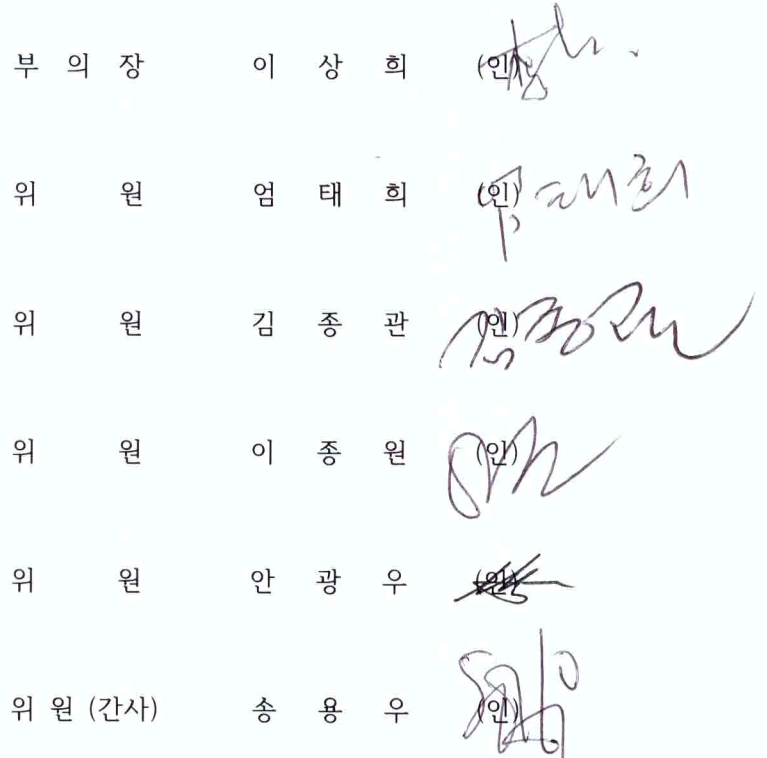 부 의 장 이 상 희 (인)
위 원 엄 태 희 (인) 엄태희
위 원 김 종 관 (인) 김종관
위 원 이 종 원 (인)
위 원 안 광 우 (인)
위 원 (간사) 송 용 우 (인)